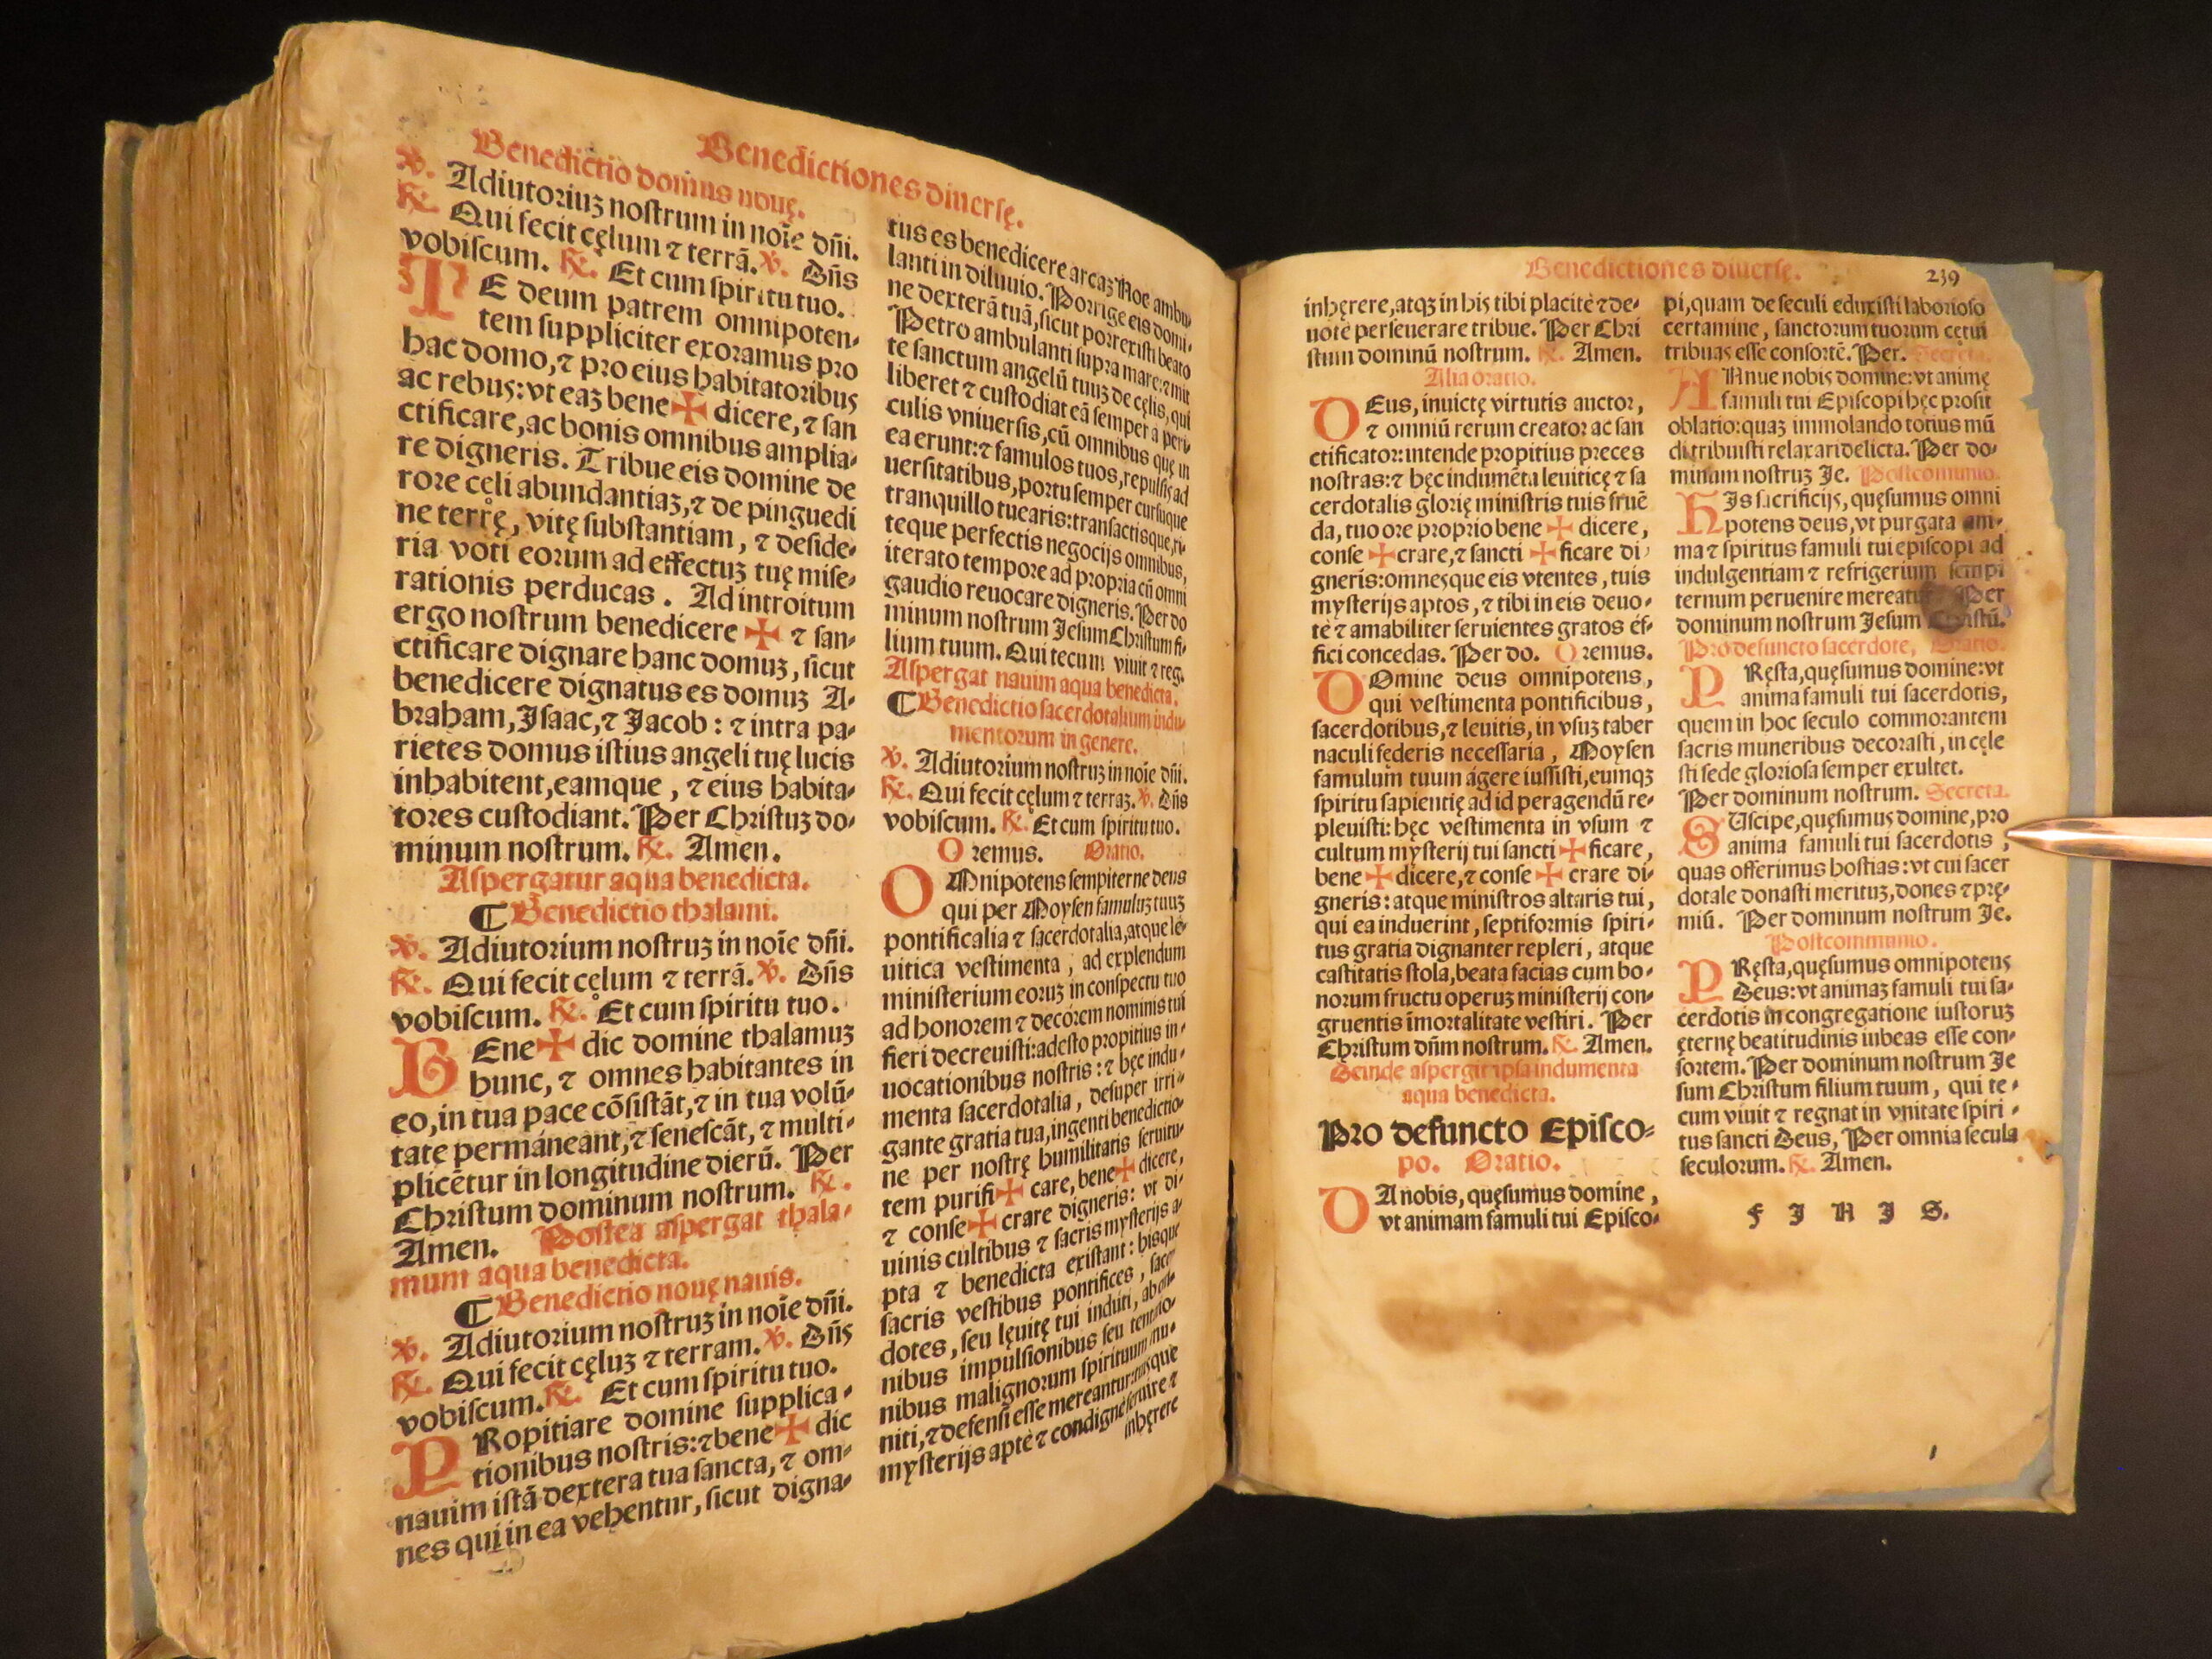 Benedictiones diuersę.
Benedictio domus nouę.
℣. Adiutoriuʒ nostrum in noīe dn̄i.
℟. Qui fecit cęlum ⁊ terrā. ℣. Dn̄s
vobiscum. ℟. Et cum spiritu tuo.
TE deum patrem omnipoten-
tem suppliciter exoramus pro
hac domo, ⁊ pro eius habitatoribus
ac rebus: vt eaʒ bene✠dicere, ⁊ san
ctificare, ac bonis omnibus amplia-
re digneris. Tribue eis domine de
rore cęli abundantiaʒ, ⁊ de pinguedi
ne terrę, vitę substantiam, ⁊ deside-
ria voti eorum ad effectuʒ tuę mise-
rationis perducas. Ad introitum
ergo nostrum benedicere ✠ ⁊ san-
ctificare dignare hanc domuʒ, sicut
benedicere dignatus es domuʒ A-
braham, Isaac, ⁊ Jacob: ⁊ intra pa-
rietes domus istius angeli tuę lucis
inhabitent, eamque, ⁊ eius habita-
tores custodiant. Per Christuʒ do-
minum nostrum. ℟. Amen.
Aspergatur aqua benedicta.
¶ Benedictio thalami.
℣. Adiutorium nostruʒ in noīe dn̄i.
℟. Qui fecit cęlum ⁊ terrā. ℣. Dn̄s
vobiscum. ℟. Et cum spiritu tuo.
BEne✠dic domine thalamuʒ
hunc, ⁊ omnes habitantes in
eo, in tua pace cōsistāt, ⁊ in tua volū-
tate permáneant, ⁊ senescāt, ⁊ multi-
plicētur in longitudine dierū. Per
Christum dominum nostrum. ℟.
Amen. Postea aspergat thala-
mum aqua benedicta.
¶ Benedictio nouę nauis.
℣. Adiutorium nostruʒ in noīe dn̄i.
℟. Qui fecit cęluʒ ⁊ terram. ℣. Dn̄s
vobiscum. ℟. Et cum spiritu tuo.
PRopitiare domine supplica-
tionibus nostris: ⁊ bene✠dic
nauim istā dextera tua sancta, ⁊ om-
nes qui in ea vehentur, sicut digna-
tus es benedicere arcaʒ Noe ambu-
lanti in diluuio. Porrige eis domi-
ne dexterā tuā, sicut porrexisti beato
Petro ambulanti supra mare: ⁊ mit
te sanctum angelū tuuʒ de cęlis, qui
liberet ⁊ custodiat eā semper a peri-
culis vniuersis, cū omnibus que in
ea erunt: ⁊ famulos tuos, repulsis ad
uersitatibus, portu semper cursuque
tranquillo tuearis: transactisque, ri-
teque perfectis negocijs omnibus,
iterato tempore ad propria cū omni
gaudio reuocare digneris. Per do
minum nostrum Jesum Christum fi-
lium tuum. Qui tecum viuit ⁊ reg.
Aspergat nauim aqua benedicta.
¶ Benedictio sacerdotalium indu-
mentorum in genere.
℣. Adiutorium nostruʒ in noīe dn̄i.
℟. Qui fecit cęlum ⁊ terraʒ. ℣. Dn̄s
vobiscum. ℟. Et cum spiritu tuo.
Oremus. Oratio.
OMnipotens sempiterne deus
qui per Moysen famuluʒ tuuʒ
pontificalia ⁊ sacerdotalia, atque le-
uitica vestimenta, ad explendum
ministerium eoruʒ in conspectu tuo
ad honorem ⁊ decórem nominis tui
fieri decreuisti: adesto propitius in-
uocationibus nostris: ⁊ hęc indu-
menta sacerdotalia, desuper irri-
gante gratia tua, ingenti benedictio-
ne per nostrę humilitatis seruitu-
tem purifi✠care, bene✠dicere,
⁊ conse✠crare digneris: vt di-
uinis cultibus ⁊ sacris mysterijs a-
pta ⁊ benedicta existant: hisque
sacris vestibus pontifices, sacer
dotes, seu lęuitę tui induti, ab om-
nibus impulsionibus seu tentatio-
nibus malignorum spirituum mu-
niti, ⁊ defensi esse mereantur: tuisque
mysterijs aptè ⁊ condignè seruire ⁊
inhęrere
Benedictiones diuersę. 239
inhęrere, atqʒ in his tibi placitè ⁊ de-
uotè perseuerare tribue. Per Chri
stum dominū nostrum. ℟. Amen.
Alia oratio.
DEus, inuictę virtutis auctor,
⁊ omniū rerum creator ac san
ctificator: intende propitius preces
nostras: ⁊ hęc indumēta leuiticę ⁊ sa
cerdotalis glorię ministris tuis fruē
da, tuo ore proprio bene✠dicere,
conse✠crare, ⁊ sancti✠ficare di-
gneris: omnesque eis vtentes, tuis
mysterijs aptos, ⁊ tibi in eis deuo-
tè ⁊ amabiliter seruientes gratos éf-
fici concedas. Per do. Oremus.
DOmine deus omnipotens,
qui vestimenta pontificibus,
sacerdotibus, ⁊ leuitis, in vsuʒ taber
naculi fęderis necessaria, Moysen
famulum tuum ágere iussisti, eumqʒ
spiritu sapientię ad id peragendū re-
pleuisti: hęc vestimenta in vsum ⁊
cultum mysterij tui sancti✠ficare,
bene✠dicere, ⁊ conse✠crare di-
gneris: atque ministros altaris tui,
qui ea induerint, septiformis spiri-
tus gratia dignanter repleri, atque
castitatis stola, beata facias cum bo-
norum fructu operuʒ ministerij con-
gruentis īmortalitate vestiri. Per
Christum dn̄m nostrum. ℟. Amen.
Deinde aspergit ipsa indumenta
aqua benedicta.
Pro defuncto Episco-
po. Oratio.
DA nobis, quęsumus domine,
vt animam famuli tui Episco-
pi, quam de seculi eduxisti laborioso
certamine, sanctorum tuorum cętui
tribuas esse consortē. Per. Secreta.
ANnue nobis domine: vt animę
famuli tui Episcopi hęc prosit
oblatio: quaʒ immolando totius mū
di tribuisti relaxari delicta. Per do-
minum nostruʒ Je. Postcomunio.
HIs sacrificijs, quęsumus omni
potens deus, vt purgata am-
ma ⁊ spiritus famuli tui episcopi ad
indulgentiam ⁊ refrigerium sempi
ternum peruenire mereatur. Per
dominum nostrum Jesum Christū.
Pro defuncto sacerdote, Oratio.
PRęsta, quęsumus domine: vt
anima famuli tui sacerdotis,
quem in hoc seculo commorantem
sacris muneribus decorasti, in cęle
sti sede gloriosa semper exultet.
Per dominum nostrum. Secreta.
SUscipe, quęsumus domine, pro
anima famuli tui sacerdotis,
quas offerimus hostias: vt cui sacer
dotale donasti merituʒ, dones ⁊ prę-
miū. Per dominum nostrum Je.
Postcommunio.
PRęsta, quęsumus omnipotens
Deus: vt animaʒ famuli tui sa-
cerdotis in congregatione iustoruʒ
ęternę beatitudinis iubeas esse con-
sortem. Per dominum nostrum Je
sum Christum filium tuum, qui te-
cum viuit ⁊ regnat in vnitate spiri-
tus sancti Deus, Per omnia secula
seculorum. ℟. Amen.
F I N I S.